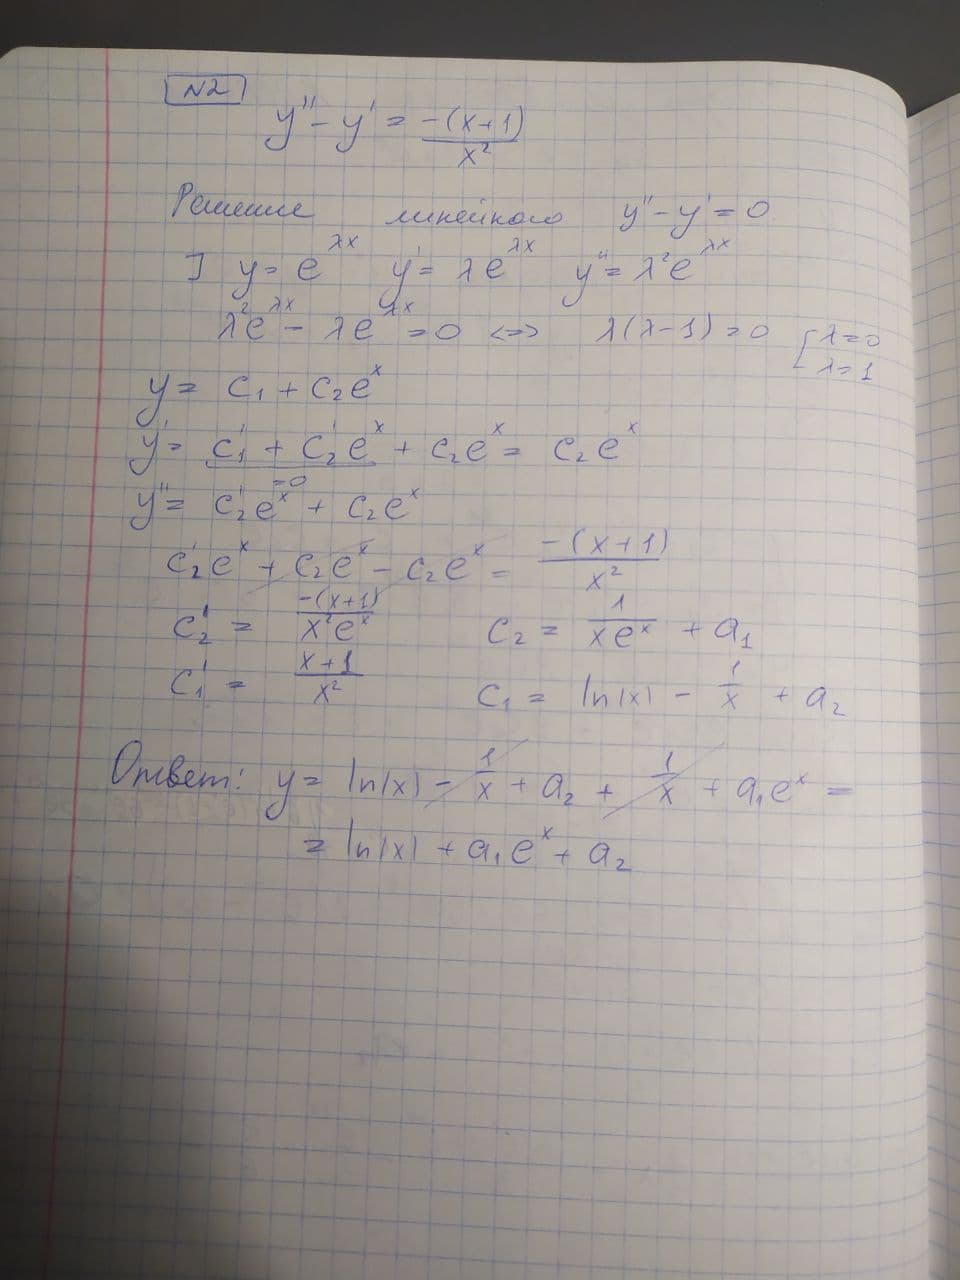 N2
y'' - y' = -(x+1)/x²
Решение линейного y'' - y' = 0
] y = e^{λx} y' = λe^{λx} y'' = λ²e^{λx}
λ²e^{λx} - λe^{λx} = 0 <=> λ(λ-1) = 0 [λ=0 λ=1
y = c₁ + c₂e^x
y' = c₁' + c₂'e^x + c₂e^x = c₂e^x
=0
y'' = c₂'e^x + c₂e^x
c₂'e^x + c₂e^x - c₂e^x = -(x+1)/x²
c₂' = -(x+1)/x²e^x c₂ = 1/xe^x + a₁
c₁' = x+1/x² c₁ = ln|x| - 1/x + a₂
Ответ: y = ln|x| - 1/x + a₂ + 1/x + a₁e^x =
= ln|x| + a₁e^x + a₂